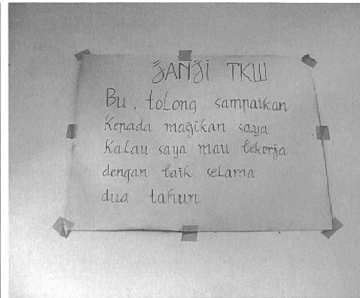 JANJI TKW
Bu. toLong sampaikan
Kepada magikan saya
KaLau saya mau bekerja
dengan baik selama
dua tahun